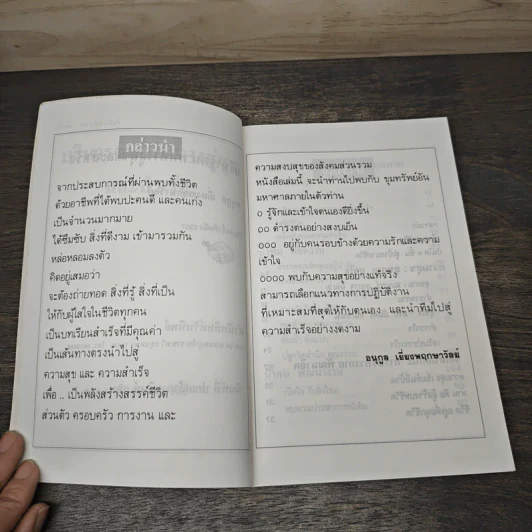 กล่าวนำ
จากประสบการณ์ที่ผ่านพบทั้งชีวิต
ด้วยอาชีพที่ได้พบปะคนดี และคนเก่ง
เป็นจำนวนมากมาย
ได้ซึมซับ สิ่งที่ดีงาม เข้ามารวมกัน
หล่อหลอมลงตัว
คิดอยู่เสมอว่า
จะต้องถ่ายทอด สิ่งที่รู้ สิ่งที่เป็น
ให้กับผู้ใส่ใจในชีวิตทุกคน
เป็นบทเรียนสำเร็จที่มีคุณค่า
เป็นเส้นทางตรงนำไปสู่
ความสุข และ ความสำเร็จ
เพื่อ .. เป็นพลังสร้างสรรค์ชีวิต
ส่วนตัว ครอบครัว การงาน และ
ความสงบสุขของสังคมส่วนรวม
หนังสือเล่มนี้ จะนำท่านไปพบกับ ขุมทรัพย์อัน
มหาศาลภายในตัวท่าน
๐ รู้จักและเข้าใจตนเองดียิ่งขึ้น
๐๐ ดำรงตนอย่างสงบเย็น
๐๐๐ อยู่กับคนรอบข้างด้วยความรักและความ
เข้าใจ
๐๐๐๐ พบกับความสุขอย่างแท้จริง
สามารถเลือกแนวทางการปฏิบัติงาน
ที่เหมาะสมที่สุดให้กับตนเอง และนำทีมไปสู่
ความสำเร็จอย่างงดงาม
อนุกูล เยี่ยงพฤกษาวัลย์